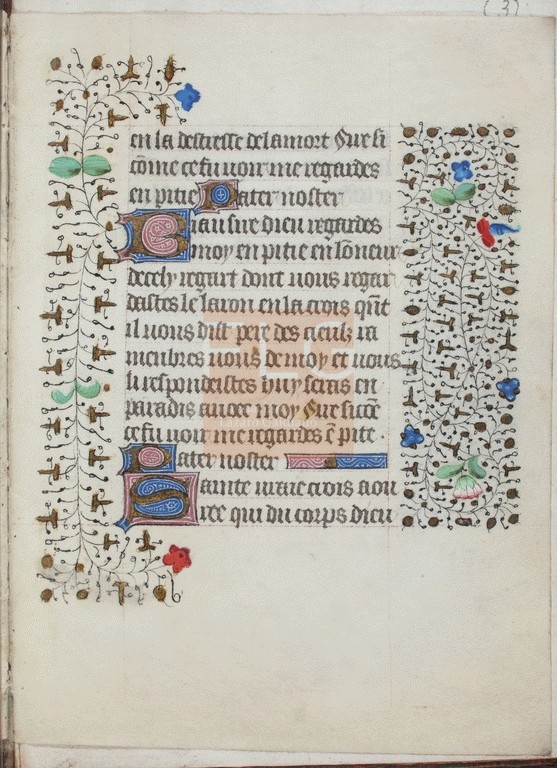 (3)
en la destresse de la mort Que si
cõme ce fu uoir me regardes
en pitie Pater noster
Biau sire dieu regardes
moy en pitie en lõneur
de cely regart dont uous regar
dastes le laron en la crois qñt
il uous dist pere des cieulx ra
menbres uous de moy et uous
li respondeistes huy seras en
paradis auec moy Que si cõe
ce fu uoir me regardes ẽ pite .
Pater noster
Sainte uraie crois aou
ree qui du corps dieu